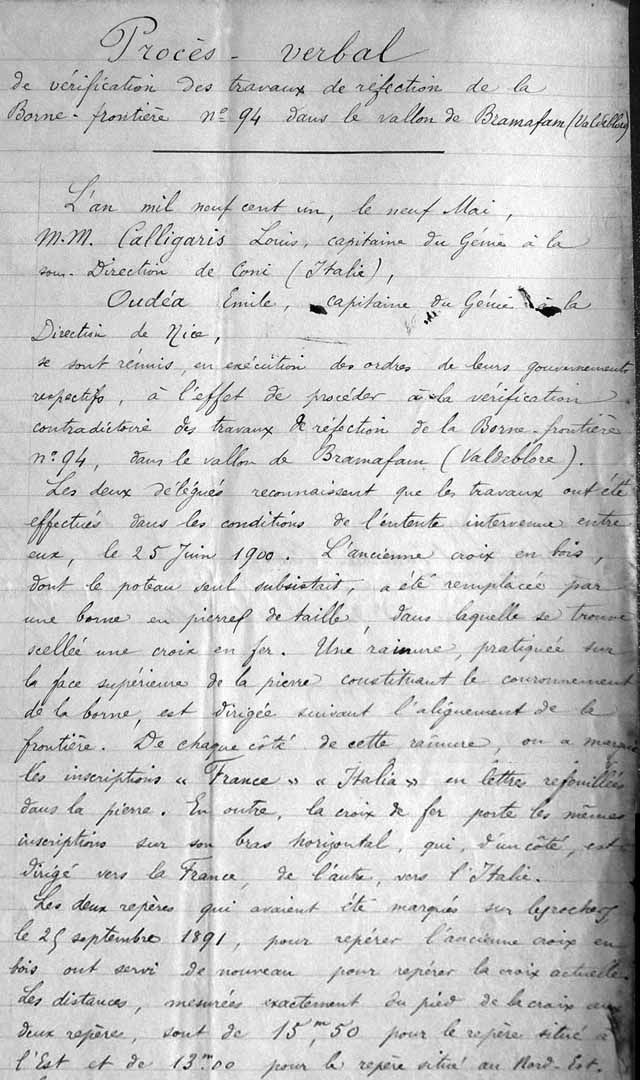 Procès-verbal
de vérification des travaux de réfection de la
Borne-frontière n° 94 dans le vallon de Bramafam (Valdeblore)
L'an mil neuf cent un, le neuf Mai,
M.M. Calligaris Louis, capitaine du Génie à la
sous-Direction de Coni (Italie),
Oudéa Emile, capitaine du Génie à la
Direction de Nice,
se sont réunis, en exécution des ordres de leurs gouvernements
respectifs, à l'effet de procéder à la vérification
contradictoire des travaux de réfection de la Borne-frontière
n° 94, dans le vallon de Bramafam (Valdeblore).
Les deux délégués reconnaissent que les travaux ont été
effectués dans les conditions de l'entente intervenue entre
eux, le 25 Juin 1900. L'ancienne croix en bois,
dont le poteau seul subsistait, a été remplacée par
une borne en pierre de taille, dans laquelle se trouve
scellée une croix en fer. Une rainure, pratiquée sur
la face supérieure de la pierre constituant le couronnement
de la borne, est dirigée suivant l'alignement de la
frontière. De chaque côté de cette rainure, on a marqué
les inscriptions « France » « Italia » en lettres refouillées
dans la pierre. En outre, la croix de fer porte les mêmes
inscriptions sur son bras horizontal, qui, d'un côté, est
dirigé vers la France, de l'autre, vers l'Italie.
Les deux repères qui avaient été marqués sur les rochers
le 25 septembre 1891, pour repérer l'ancienne croix en
bois ont servi de nouveau pour repérer la croix actuelle.
Les distances, mesurées exactement du pied de la croix aux
deux repère, sont de 15,m50 pour le repère situé à
l'Est et de 13m00 pour le repère situé au Nord-Est.